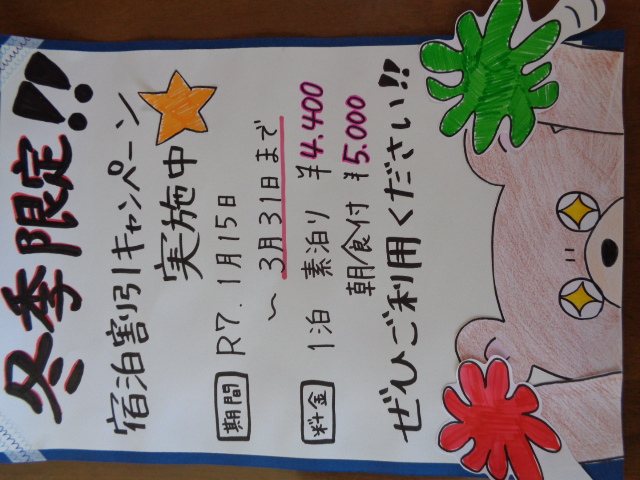 冬季限定!!
宿泊割引キャンペーン
実施中
期間 R7.1月15日
〜3月31日まで
料金 1泊 素泊り ¥4.400
朝食付 ¥5.000
ぜひご利用ください!!